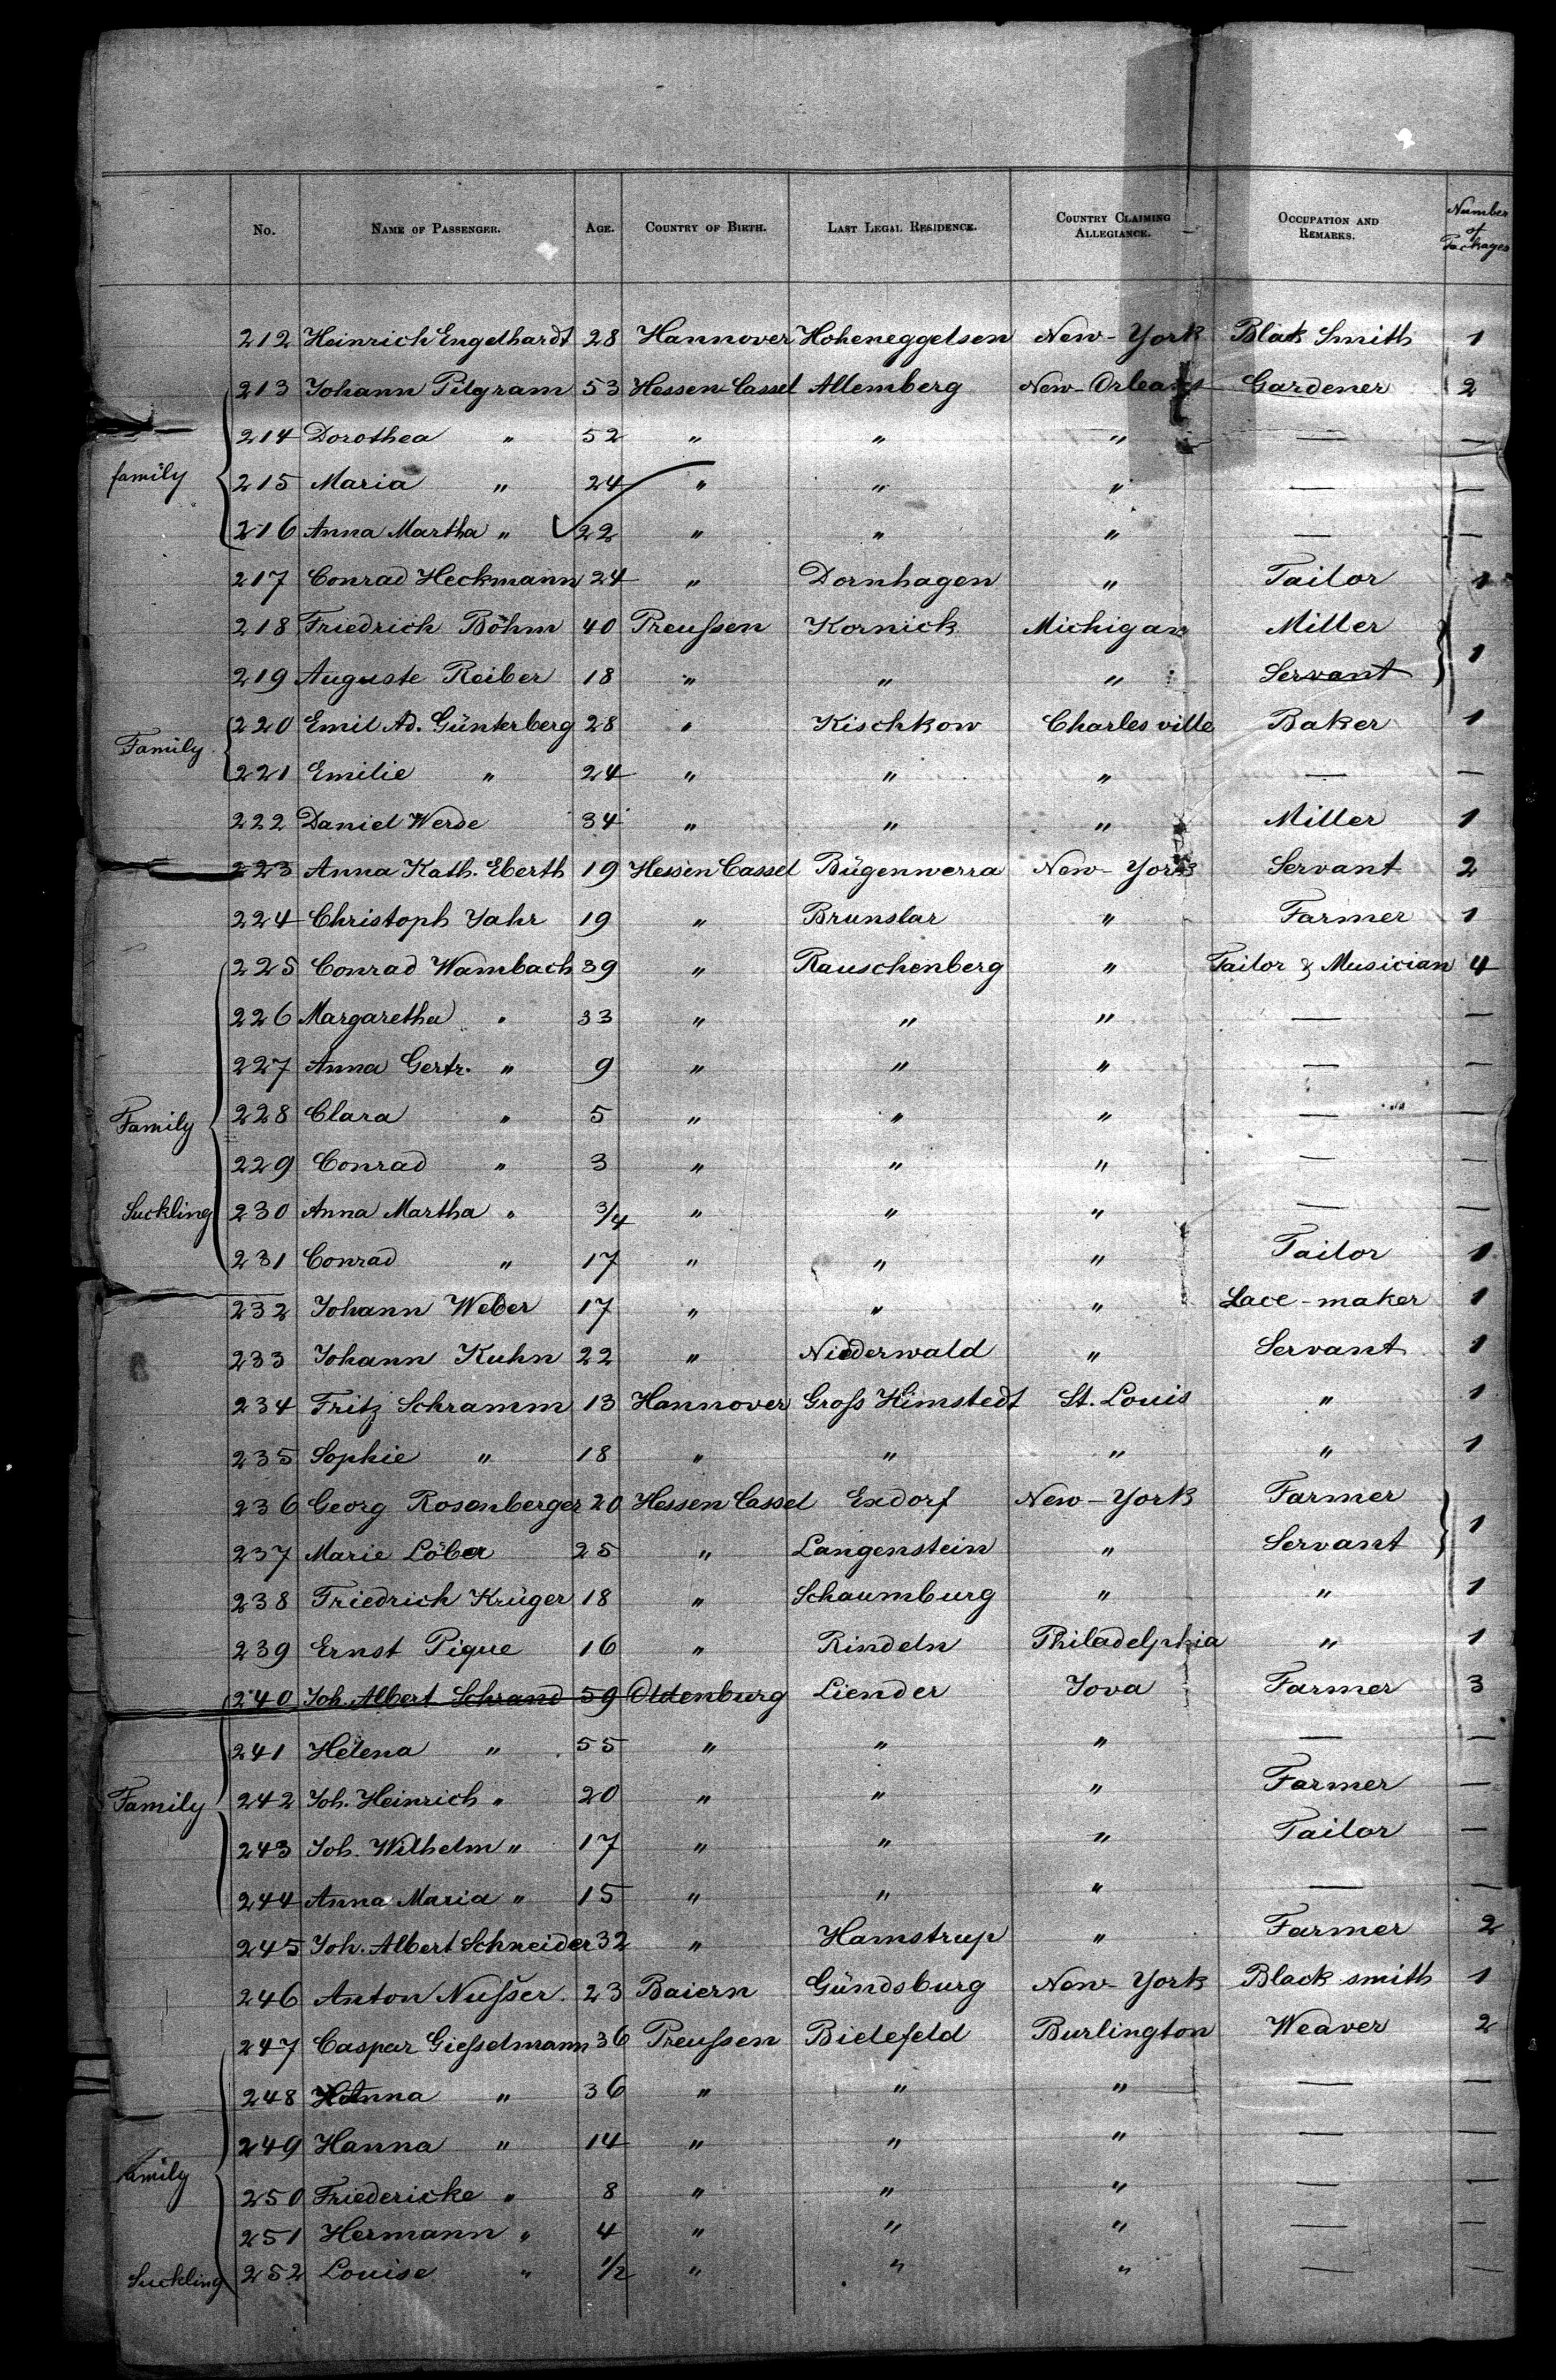 No. NAME OF PASSENGER. AGE. COUNTRY OF BIRTH. LAST LEGAL RESIDENCE. COUNTRY CLAIMING ALLEGIANCE. OCCUPATION AND REMARKS. Number of Packages
212 Heinrich Engelhardt 28 Hannover Hoheneggelsen New-York Black Smith 1
213 Johann Pilgram 53 Hessen Cassel Allemberg New-Orleans Gardener 2
214 Dorothea " 52 " " " — —
family 215 Maria " 24 " " " — —
216 Anna Martha " 22 " " " — —
217 Conrad Heckmann 24 " Dornhagen " Tailor 1
218 Friedrich Böhm 40 Preußen Kornick Michigan Miller 1
219 Auguste Reiber 18 " " " Servant
220 Emil Ad. Günterberg 28 " Kischkow Charlesville Baker 1
Family 221 Emilie " 24 " " " — —
222 Daniel Werde 34 " " " Miller 1
223 Anna Kath. Eberth 19 Hessen Cassel Bügenwerra New-York Servant 2
224 Christoph Jahr 19 " Brunslar " Farmer 1
225 Conrad Wambach 39 " Rauschenberg " Tailor & Musician 4
226 Margaretha " 33 " " " — —
227 Anna Gertr. " 9 " " " — —
Family 228 Clara " 5 " " " — —
229 Conrad " 3 " " " — —
Suckling 230 Anna Martha " 3/4 " " " — —
231 Conrad " 17 " " " Tailor 1
232 Johann Weber 17 " " " Lace-maker 1
233 Johann Kuhn 22 " Niederwald " Servant 1
234 Fritz Schramm 13 Hannover Groß Himstedt St. Louis " 1
235 Sophie " 18 " " " " 1
236 Georg Rosenberger 20 Hessen Cassel Exdorf New-York Farmer 1
237 Marie Löber 25 " Langenstein " Servant
238 Friedrich Krüger 18 " Schaumburg " " 1
239 Ernst Pique 16 " Rindeln Philadelphia " 1
240 Joh. Albert Schrand 59 Oldenburg Liender Iova Farmer 3
241 Helena " 55 " " " — —
Family 242 Joh. Heinrich " 20 " " " Farmer —
243 Joh. Wilhelm " 17 " " " Tailor —
244 Anna Maria " 15 " " " — —
245 Joh. Albert Schneider 32 " Hamstrup " Farmer 2
246 Anton Nußer 23 Baiern Gündsburg New-York Black smith 1
247 Caspar Gießelmann 36 Preußen Bielefeld Burlington Weaver 2
248 Anna " 36 " " " — —
249 Hanna " 14 " " " — —
family 250 Friedericke " 8 " " " — —
251 Hermann " 4 " " " — —
Suckling 252 Louise " 1/2 " " " — —